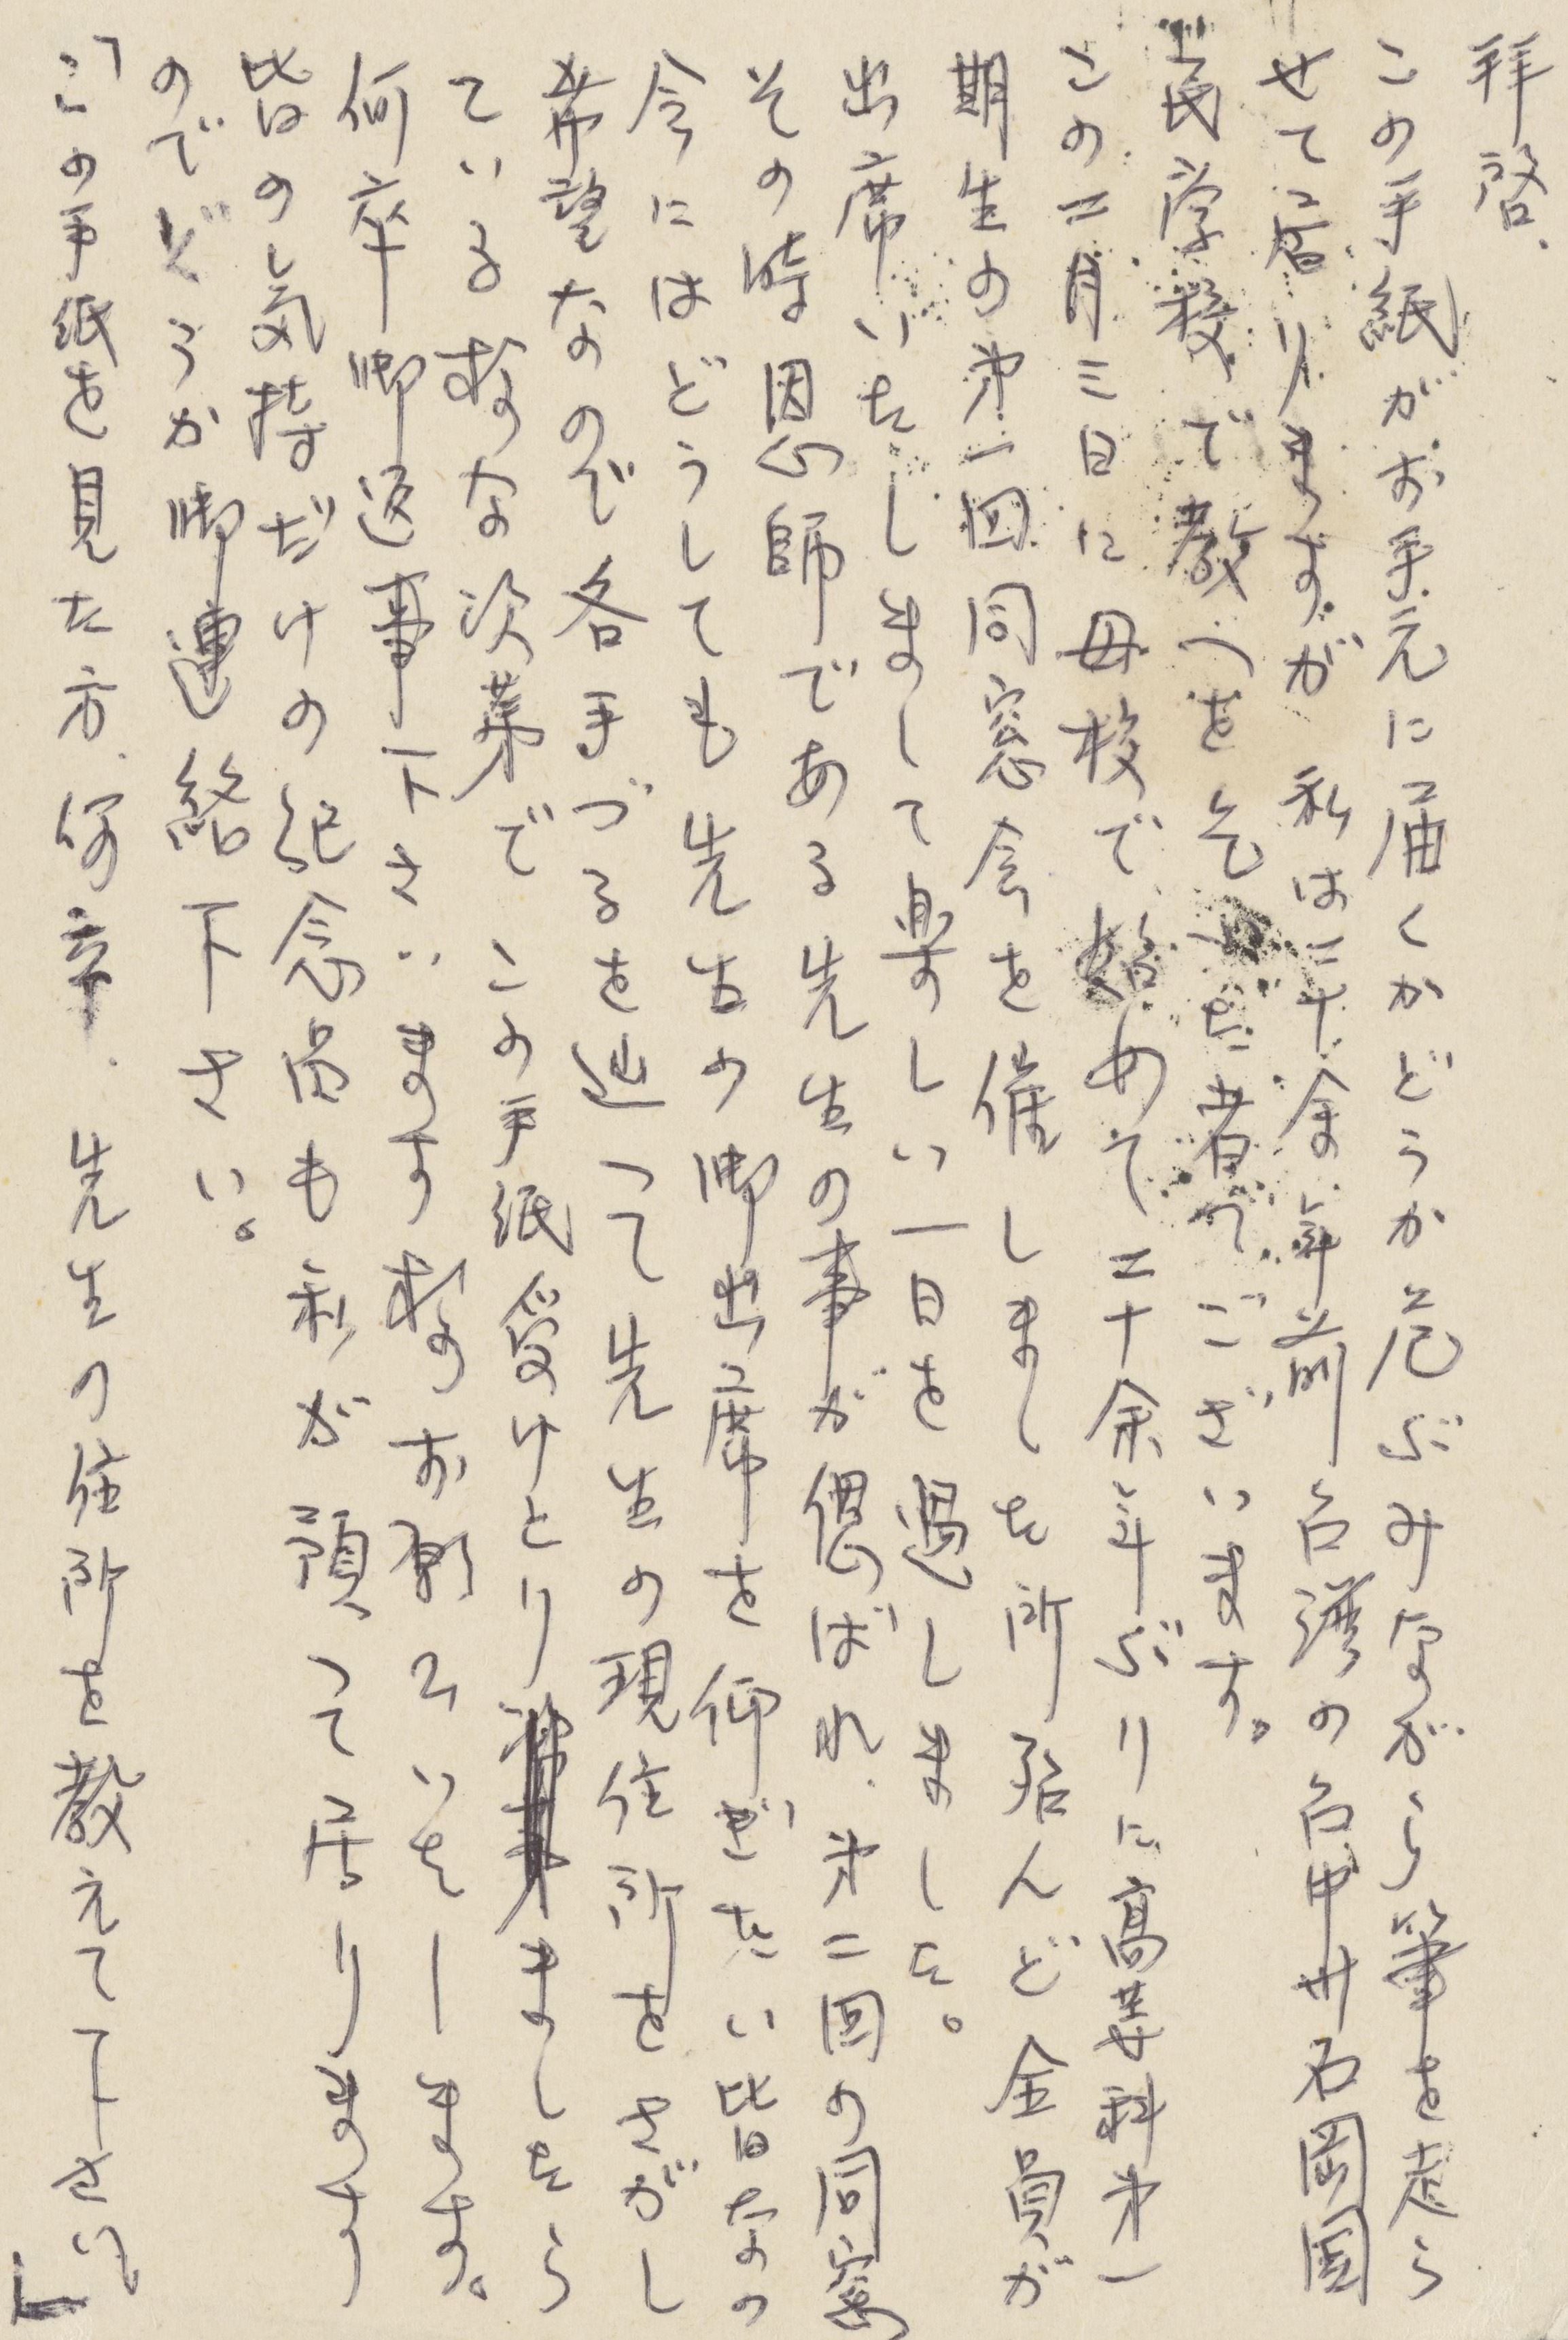 拝啓.
この手紙がお手元に届くかどうか危ぶみながら筆を走ら
せて居りますが 私は二十余年前台湾の台中州石岡国
民学校で教へを乞ふた者でございます。
この二月三日に母校で始めて二十余年ぶりに高等科第一
期生の第一回同窓会を催しました所殆んど全員が
出席いたしまして楽しい一日を過しました。
その時恩師である先生の事が偲ばれ、第二回の同窓
会にはどうしても先生の御出席を仰ぎたい皆なの
希望なので各手づるを辿って先生の現住所をさがし
ている様な次第で この手紙受けとりましたら
何卒御返事下さいます様お願ひいたします。
皆の気持だけの記念品も私が預って居ります
のでどうか御連絡下さい。
「この手紙を見た方、何卒、先生の住所を教えて下さい」